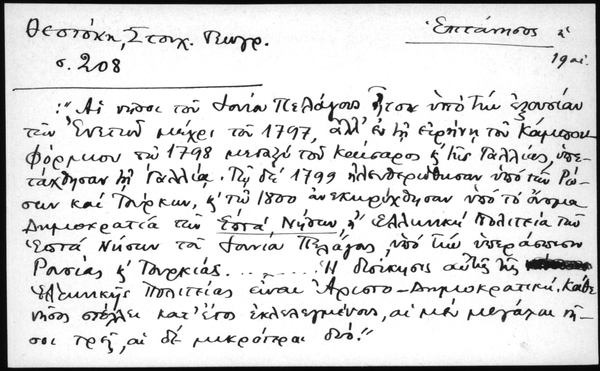 Θεοτόκη, Στοιχ. Γεωγρ.
σ. 208
Ἑπτάνησος
19 αἰ.
:"Αἱ νῆσοι τοῦ Ἰονίου Πελάγους ἦσαν ὑπὸ τὴν ἐξουσίαν
τῶν Ἑνετῶν μέχρι τοῦ 1797, ἀλλ' ἐν τῇ εἰρήνῃ τοῦ Κάμπου
Φόρμιου τῷ 1798 μεταξὺ τοῦ Καίσαρος κ' τῆς Γαλλίας, ὑπε-
τάχθησαν τῇ Γαλλίᾳ. Τῷ δὲ 1799 ἠλευθερώθησαν ὑπὸ τῶν Ρώ-
σων καὶ Τούρκων, κ' τῷ 1800 ἀνεκηρύχθησαν ὑπὸ τὸ ὄνομα
Δημοκρατία τῶν Ἑπτὰ Νήσων ἢ Ἑλληνικὴ Πολιτεία τῶν
Ἑπτὰ Νήσων τοῦ Ἰονίου Πελάγους, ὑπὸ τὴν ὑπεράσπισιν
Ρωσίας κ' Τουρκίας. ......... Ἡ διοίκησις αὐτῆς τῆς
Ἑλληνικῆς Πολιτείας εἶναι Ἀριστο-Δημοκρατική. Κάθε
νῆσος στέλλει κατ' ἔτος ἐκλελεγμένους, αἱ μὲν μεγάλαι νῆ-
σοι τρεῖς, αἱ δὲ μικρότεραι δύο."